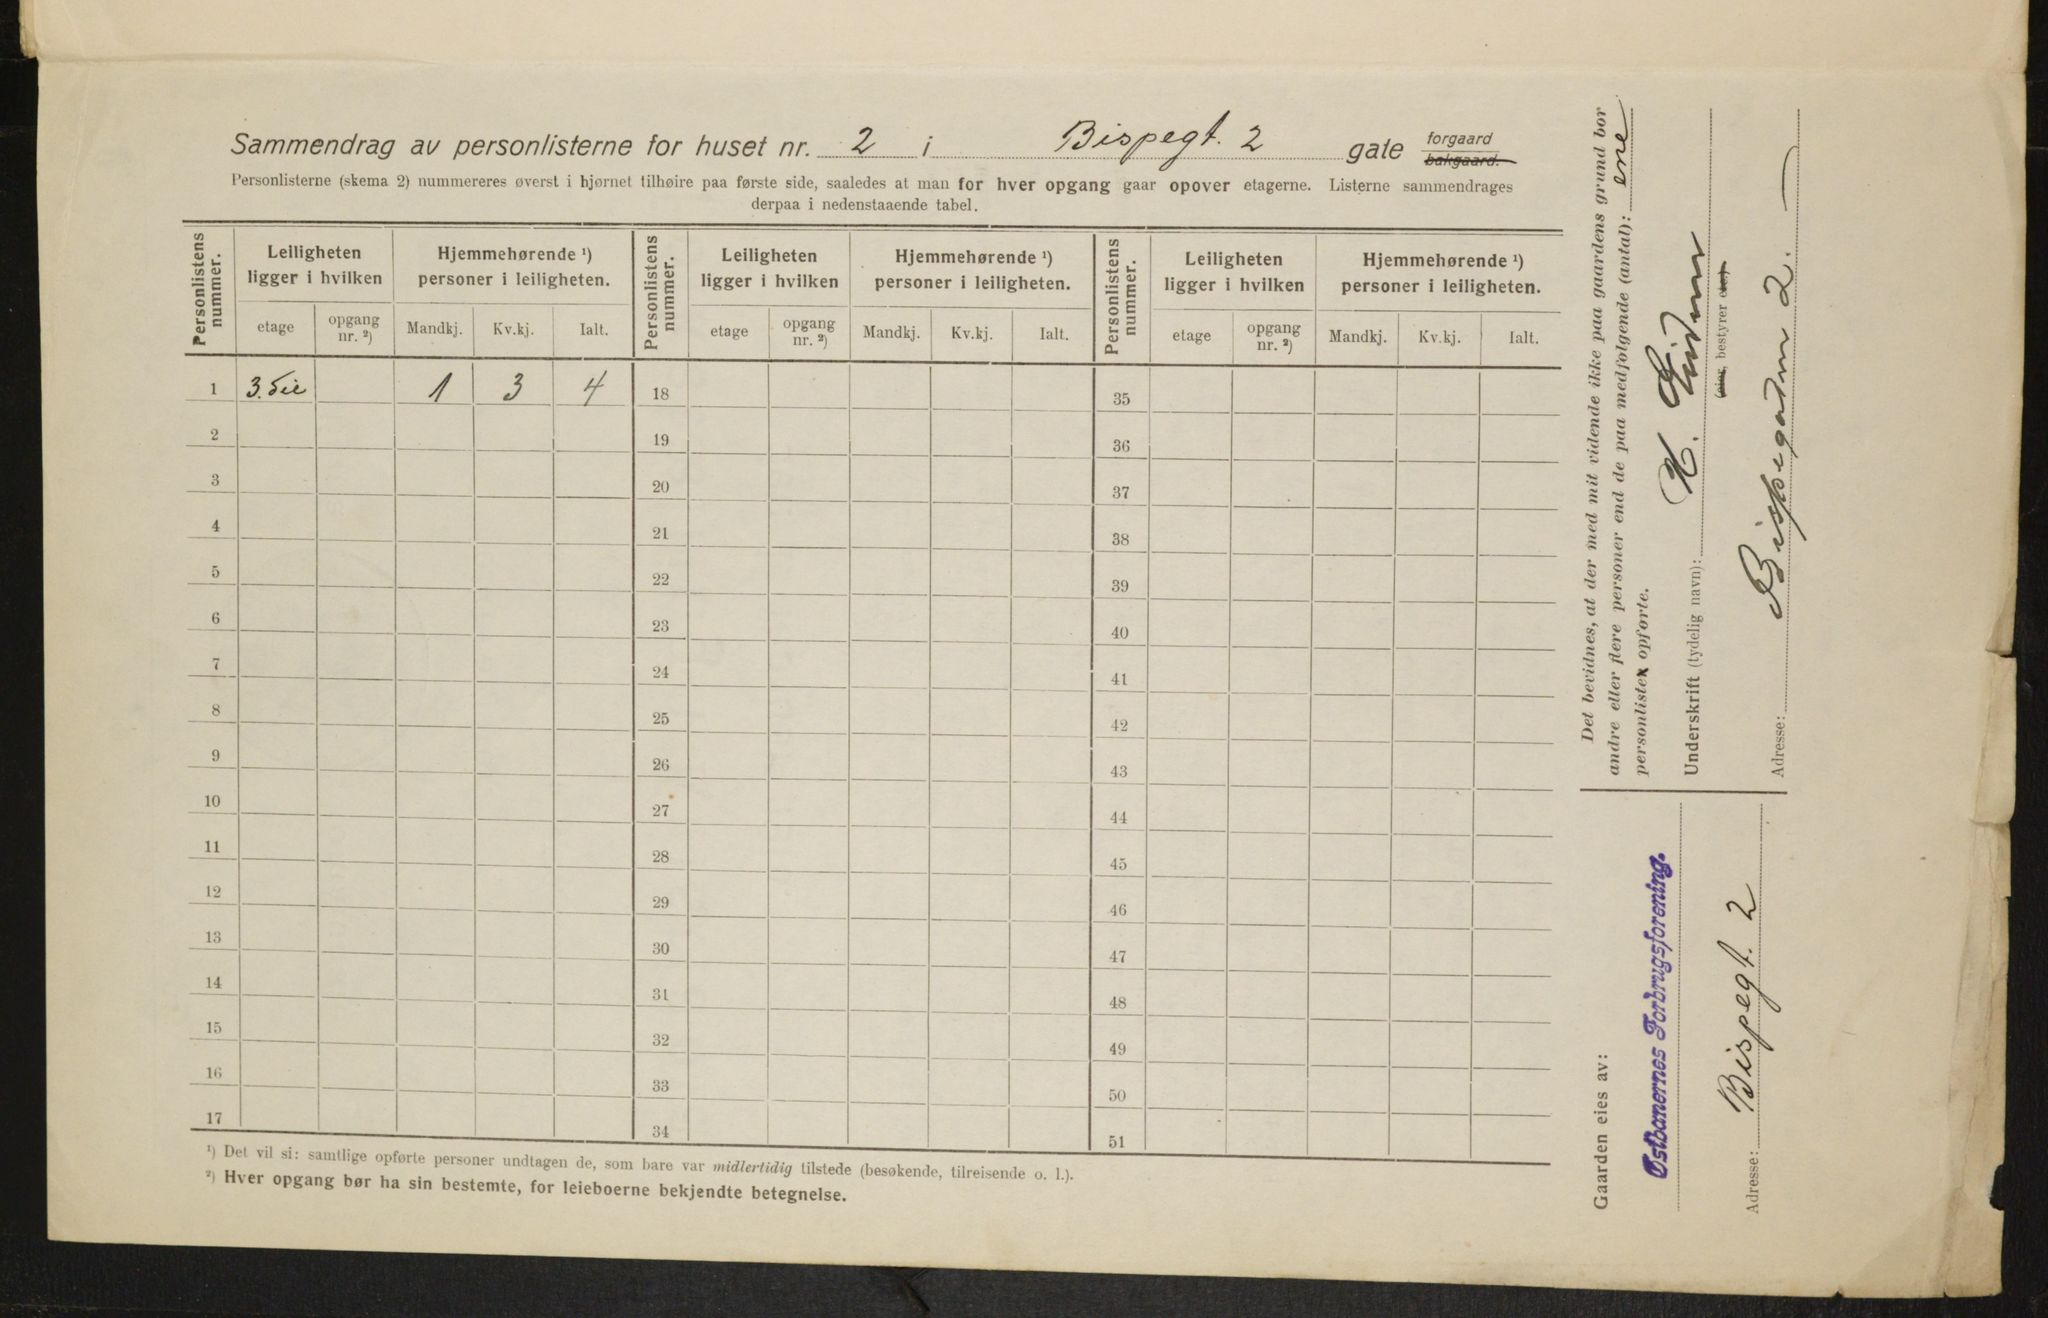 Sammendrag av personlisterne for huset nr. 2 i Bispegt. 2 gate forgaard bakgaard.
Personlisterne (skema 2) nummereres øverst i hjørnet tilhøire paa første side, saaledes at man for hver opgang gaar opover etagerne. Listerne sammendrages
derpaa i nedenstaaende tabel.
Personlistens nummer. Leiligheten ligger i hvilken Hjemmehørende ¹) personer i leiligheten. Personlistens nummer. Leiligheten ligger i hvilken Hjemmehørende ¹) personer i leiligheten. Personlistens nummer. Leiligheten ligger i hvilken Hjemmehørende ¹) personer i leiligheten.
etage opgang nr. ²) Mandkj. Kv.kj. Ialt. etage opgang nr. ²) Mandkj. Kv.kj. Ialt. etage opgang nr. ²) Mandkj. Kv.kj. Ialt.
1 3. 1 3 4 18 35
2 19 36
3 20 37
4 21 38
5 22 39
6 23 40
7 24 41
8 25 42
9 26 43
10 27 44
11 28 45
12 29 46
13 30 47
14 31 48
15 32 49
16 33 50
17 34 51
¹) Det vil si: samtlige opførte personer undtagen de, som bare var midlertidig tilstede (besøkende, tilreisende o. l.).
²) Hver opgang bør ha sin bestemte, for leieboerne bekjendte betegnelse.
Det bevidnes, at der med mit vidende ikke paa gaardens grund bor
andre eller flere personer end de paa medfølgende (antal): ene
personlister opførte.
Underskrift (tydelig navn): H.
(eier, bestyrer etc.)
Adresse: Bispegaten 2.
Gaarden eies av:
Østbanernes Forbrugsforening.
Adresse: Bispegt. 2